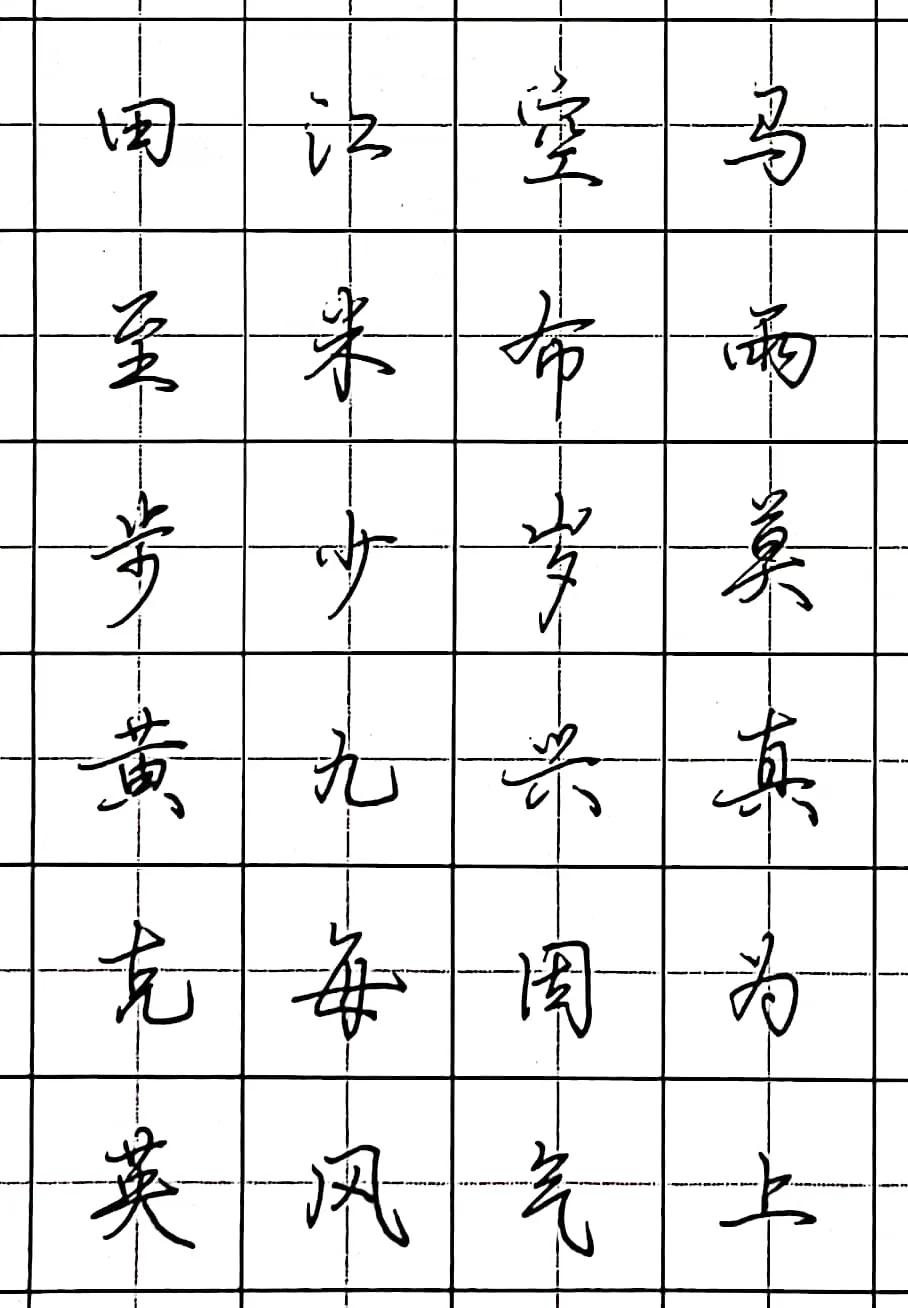 田江空马
至米布雨
步少岁莫
黄九兴真
克每固为
英风气上